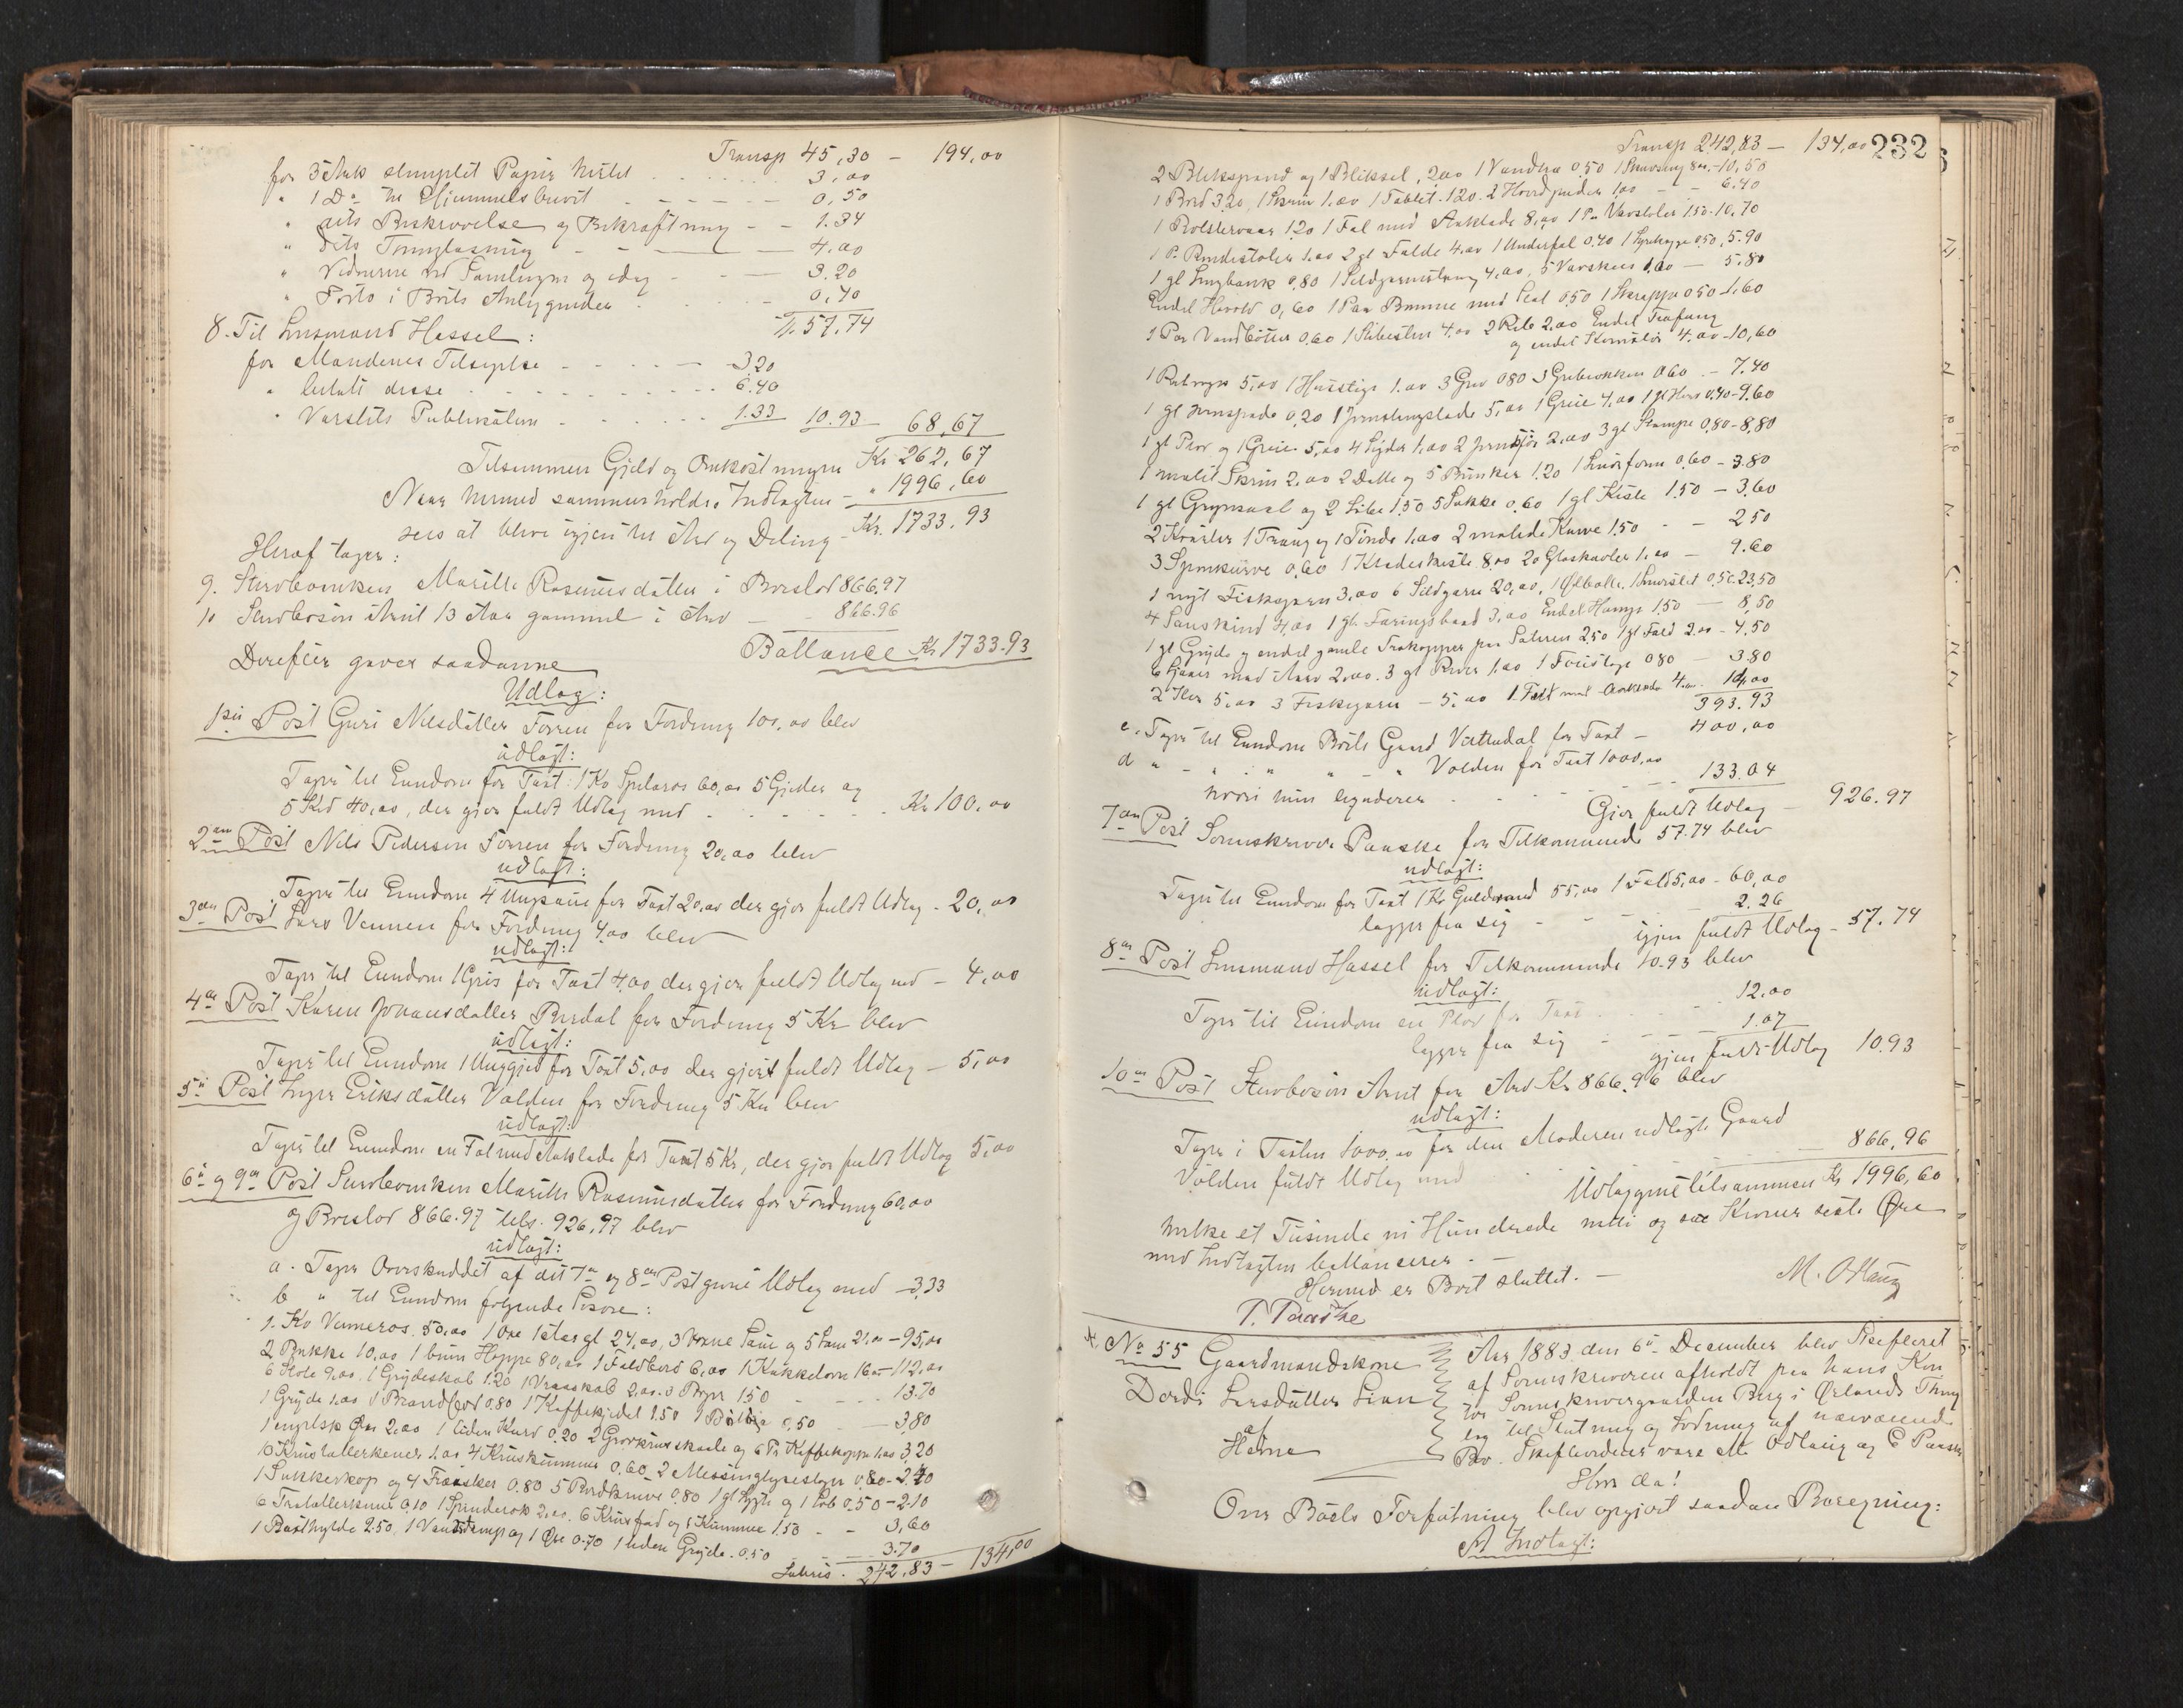 Transp 45,30 – 194,00
for 3 Ark stemplet Papir hertil 3,00
" 1 Do til Hjemmelsbrevet 0,50
" dets Beskrivelse og Bekræftning 1.34
" dets Tinglæsning 4,00
" Vidnerne ved Samlingen og idag 3.20
" Porto i Boets Anliggender 0,40
57,74
8. Til Lensmand Hassel:
for Mændenes Tilsigelse 3,20
" betalt disse 6.40
" Varslets Publikation 1.33 10.93 68,67
Tilsammen Gjeld og Omkostningen Kr 262,67
Naar hermed sammenholdes Indtægten – " 1996,60
sees at blive igjen til Arv og Deling – Kr. 1733.93
Heraf tager:
9. Stervboenken Marith Rasmusdatter i Boeslod 866.97
10 Stervbosøn Arnt 13 Aar gammel i Arv 866.96
Ballance Kr 1733.93
Derefter gaves saadanne
Udlæg:
1ste Post Guri Nilsdatter Forren for Fordring 100,00 blev
udlagt:
Tages til Eiendom for Taxt: 1 Ko 60,00 5 Gjeder og
5 Kid 40,00, der gjør fuldt Udlæg med Kr 100,00
2den Post Nils Pedersen Forren for Fordring 20,00 blev
udlagt:
Tages til Eiendom 4 for Taxt 20,00 der gjør fuldt Udlæg – 20,00
3die Post Lars Vennen for Fordring 4,00 blev
udlagt:
Tages til Eiendom 1 Gris for Taxt 4,00 der gjør fuldt Udlæg med – 4,00
4de Post Karen Johansdatter for Fordring 5 Kr blev
udlagt:
Tages til Eiendom 1 Unggjed for Taxt 5,00 der gjør fuldt Udlæg – 5,00
5te Post Inger Eriksdatter Volden for Fordring 5 Kr blev
udlagt:
Tages til Eiendom en Fæl med Aaklæde for Taxt 5 Kr, der gjør fuldt Udlæg 5,00
6te og 9de Post Stervboenken Marith Rasmusdatter for Fordring 60,00
og Boeslod 866.97 tils. 926,97 blev
udlagt:
a. Tages Overskuddet af det 7de og 8de Post givne Udlæg med – 3,33
b " til Eiendom følgende Løsøre:
1 Ko 50,00 1 Oxe 1 Aar gl 24,00, 3 Voxne Saue og 5 Lam 21,00 – 95,00
2 Bukke 10,00 1 brun Hoppe 80,00 1 Foldbord 6,00 1 Kakkelovn 16,00 – 112,00
6 Stole 9,00. 1 Grydeskab 1.20 1 2,00. 3 1.50 13.70
1 Gryde 1,00 1 0.80 1 Kaffekjedel 1.50 1 0,50 3,80
1 engelsk Øxe 2,00 1 liden Kurv 0.20 2 og 6 Pr Kaffekopper 1,00 3,20
10 Krustallerkener 1.00 4 Kruskummer 0,60 2 Messinglysestager 0,80 – 2.40
1 Sukkerkop og 4 0.80 5 Bordknive 0.80 1 gl Lygte og 1 0.50 – 2.10
6 Trætallerkener 0.10 1 Spinderok 2,00. 6 Krusfad og 1 Kumme 1.50 3,60
1 2.50, 1 og 1 Øxe 0.70 1 liden Gryde 0.50 3.70
Lateris 242,83 – 134,00
Transp 242,83 – 134,00 232
2 Blikspand og 1 Blikfel, 2,00 1 0,50 1 8,00 – 10,50
1 Bord 3.20, 1 Skrin 1.00 1 1.20. 2 Hovedpuder 1,00 6.40
1 Bolstervaar 1.20 1 Fæl med Aaklæde 8,00 1 Pr Vævstole 1.50 – 10,70
1 Pr Rendestole 1.00 2 gl Fælde 4.00 1 Underfæl 0.40 1 0.50, 5.90
1 gl 0,80 1 4,00, 5 Vævskeer 1,00 – 5.80
Endel 0,60 1 Par Bismere med 0.50 1 Skreppe 0.50 – 1.60
1 Par Vandbøtter 0.60 1 Slibesten 4.00 2 Reb 2,00 Endel Træfang
og endel 4.00 – 10,60
1 5,00 1 Husstige 1.00 3 Greb 0.80 3 0.60 – 7.40
1 gl Jernspade 0,20 1 5,00 1 Greie 4,00 1 gl 0.40 – 9.60
1 gl Plov og 1 Greie 5,00 4 Sigder 1.00 2 2,00 3 gl 0,80 – 8,80
1 malet Skrin 2,00 2 og 5 1.20 1 0.60 – 3.80
1 gl og 2 1.50 5 Sække 0.60 1 gl Kiste 1.50 – 3.60
2 1 Traug og 1 Tønde 1.00 2 malede Kurve 1.50 2.50
3 Sponkurve 0,60 1 Klædeskiste 8.00 20 1.00 – 9.60
1 nyt Fiskegarn 3.00 6 Sildgarn 20,00, 1 Ølbolle, 1 0.50. 23,50
4 Saueskind 4,00 1 gl. Færingsbaad 3,00 Endel Hamp 1.50 – 8,50
1 gl Gryde og endel gamle Trækopper paa Sæteren 2,50 1 gl Fæld 2.00 – 4,50
6 Ljaaer med 2,00. 3 gl 1.00 1 0.80 – 3.80
2 5,00 3 Fiskegarn – 5,00 1 4,00 14,00
393.93
c. Tages til Eiendom Boets Gaard for Taxt – 400,00
d " – " – " Volden for Taxt 1000,00
hvori hun lignderer 133.04
Gjør fuldt Udlæg – 926.97
7de Post Sorenskriver Paaske for Tilkommende 57.74 blev
udlagt:
Tages til Eiendom for Taxt 1 Ko 55,00 1 Fæld 5,00 – 60,00
lægges fra sig 2.26
igjen fuldt Udlæg – 57.74
8de Post Lensmand Hassel for Tilkommende 10.93 blev
udlagt:
Tages til Eiendom en Plov for Taxt 12.00
lægger fra sig 1.07
gjen fuldt Udlæg 10.93
10de Post Stervbosøn Arnt for Arv Kr 866.96 blev
udlagt:
Tages i Taxten 1000,00 for den Moderen udlagte Gaard
Volden fuldt Udlæg med 866,96
Udlæggene tilsammen Kr 1996,60
hvilke et Tusinde ni Hundrede nitti og sex Kroner sexti Øre
med Indtægten ballancerer. –
Hermed er Boet sluttet. –
P. Paaske
M. Odlaug
No 55 Gaardmandskone
Dordi Larsdatter Lian
af
Hevne
Aar 1883 den 6te December blev Skifteret
af Sorenskriveren afholdt paa hans Kon
tor Sorenskrivergaarden Berg i Ørlands Thing
lag til Slutning og Lodning af nævnende
Bo. Skiftevidner vare M. Odlaug og E Paaske
Hvor da!
Over Boets Forfatning blev opgjort saadan Beregning:
A Indtægt: